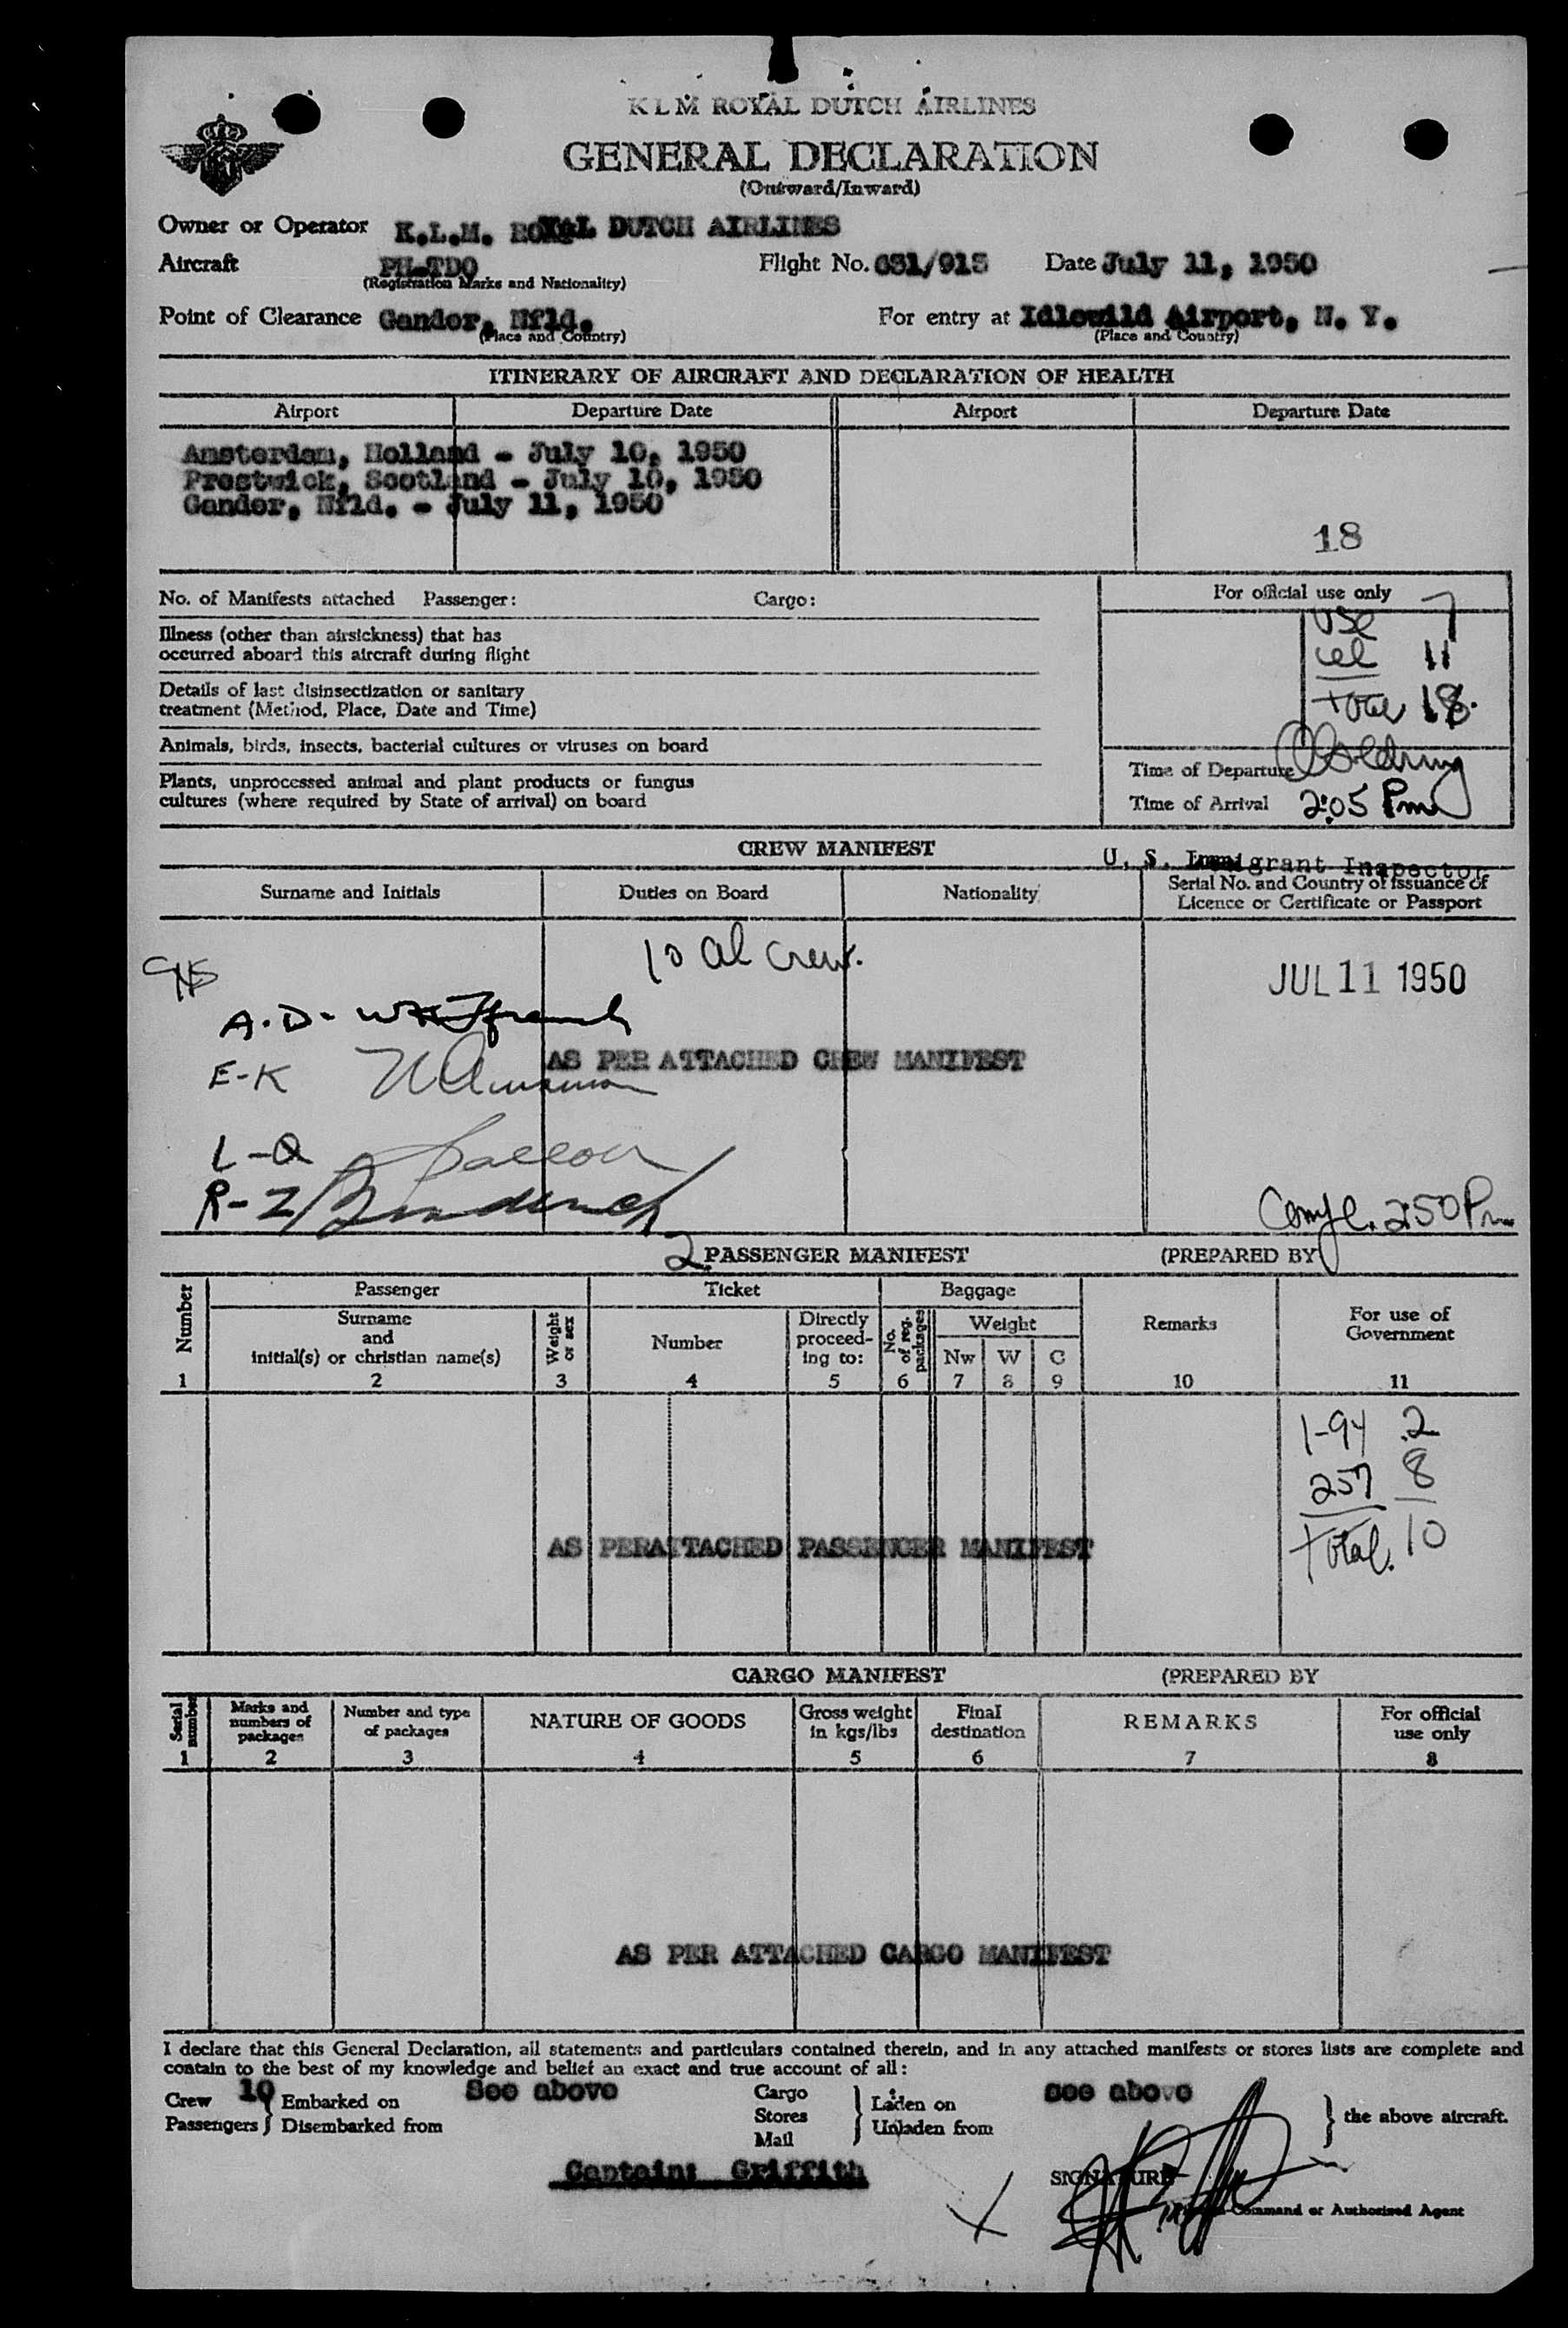 K L M ROYAL DUTCH AIRLINES
GENERAL DECLARATION
(Outward/Inward)
Owner or Operator K.L.M. ROYAL DUTCH AIRLINES
Aircraft PH-TDO Flight No. 631/915 Date July 11, 1950
(Registration Marks and Nationality)
Point of Clearance Gander, Nfld. For entry at Idlewild Airport, N. Y.
(Place and Country) (Place and Country)
ITINERARY OF AIRCRAFT AND DECLARATION OF HEALTH
Airport Departure Date Airport Departure Date
Amsterdam, Holland - July 10, 1950
Prestwick, Scotland - July 10, 1950
Gander, Nfld. - July 11, 1950
18
No. of Manifests attached Passenger: Cargo: For official use only
USC 7
Illness (other than airsickness) that has
occurred aboard this aircraft during flight
al 11
Details of last disinsectization or sanitary
treatment (Method, Place, Date and Time)
Total 18.
Animals, birds, insects, bacterial cultures or viruses on board
Time of Departure
Plants, unprocessed animal and plant products or fungus
cultures (where required by State of arrival) on board
Time of Arrival 2:05 Pm
CREW MANIFEST
U. S. Immigrant Inspector
Surname and Initials Duties on Board Nationality Serial No. and Country of Issuance of
Licence or Certificate or Passport
10 al crew.
JUL 11 1950
A.D-
AS PER ATTACHED CREW MANIFEST
E-K
L-Q
R-Z
Compl. 2:50 Pm
2 PASSENGER MANIFEST (PREPARED BY
Number Passenger Ticket Baggage Remarks For use of
Government
Surname
and
initial(s) or christian name(s)
Weight
or sex
Number
Directly
proceed-
ing to:
No.
of reg.
packages
Weight
Nw W C
1 2 3 4 5 6 7 8 9 10 11
1-94 2
257 8
Total. 10
AS PER ATTACHED PASSENGER MANIFEST
CARGO MANIFEST (PREPARED BY
Serial
number
Marks and
numbers of
packages
Number and type
of packages
NATURE OF GOODS
Gross weight
in kgs/lbs
Final
destination
REMARKS
For official
use only
1 2 3 4 5 6 7 8
AS PER ATTACHED CARGO MANIFEST
I declare that this General Declaration, all statements and particulars contained therein, and in any attached manifests or stores lists are complete and
contain to the best of my knowledge and belief an exact and true account of all:
Crew 10 Embarked on See above Cargo Laden on see above
Passengers Disembarked from Stores Unladen from the above aircraft.
Mail
Captain: Griffith
SIGNATURE
Command or Authorised Agent